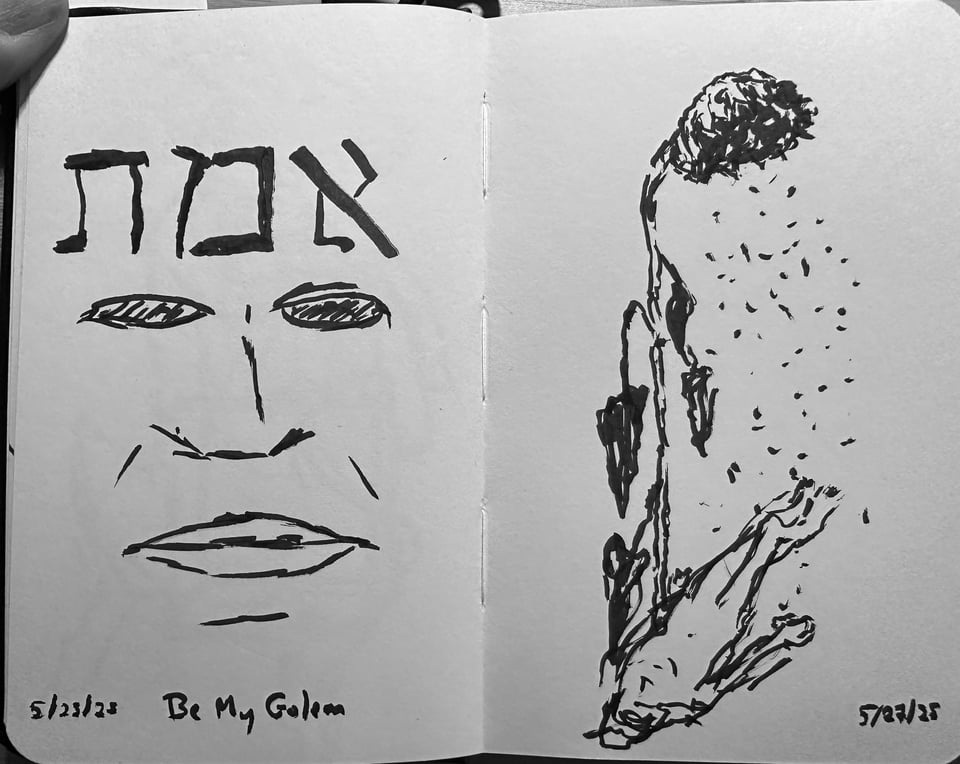 אמת
5/23/25 Be My Golem
5/27/25